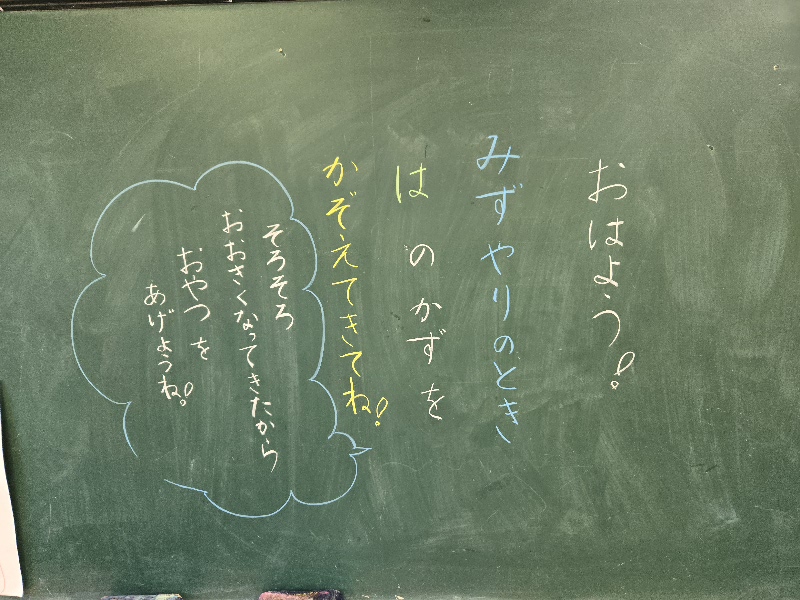 おはよう!
みずやりのとき
は のかずを
かぞえてきてね!
そろそろ
おおきくなってきたから
おやつを
あげようね!